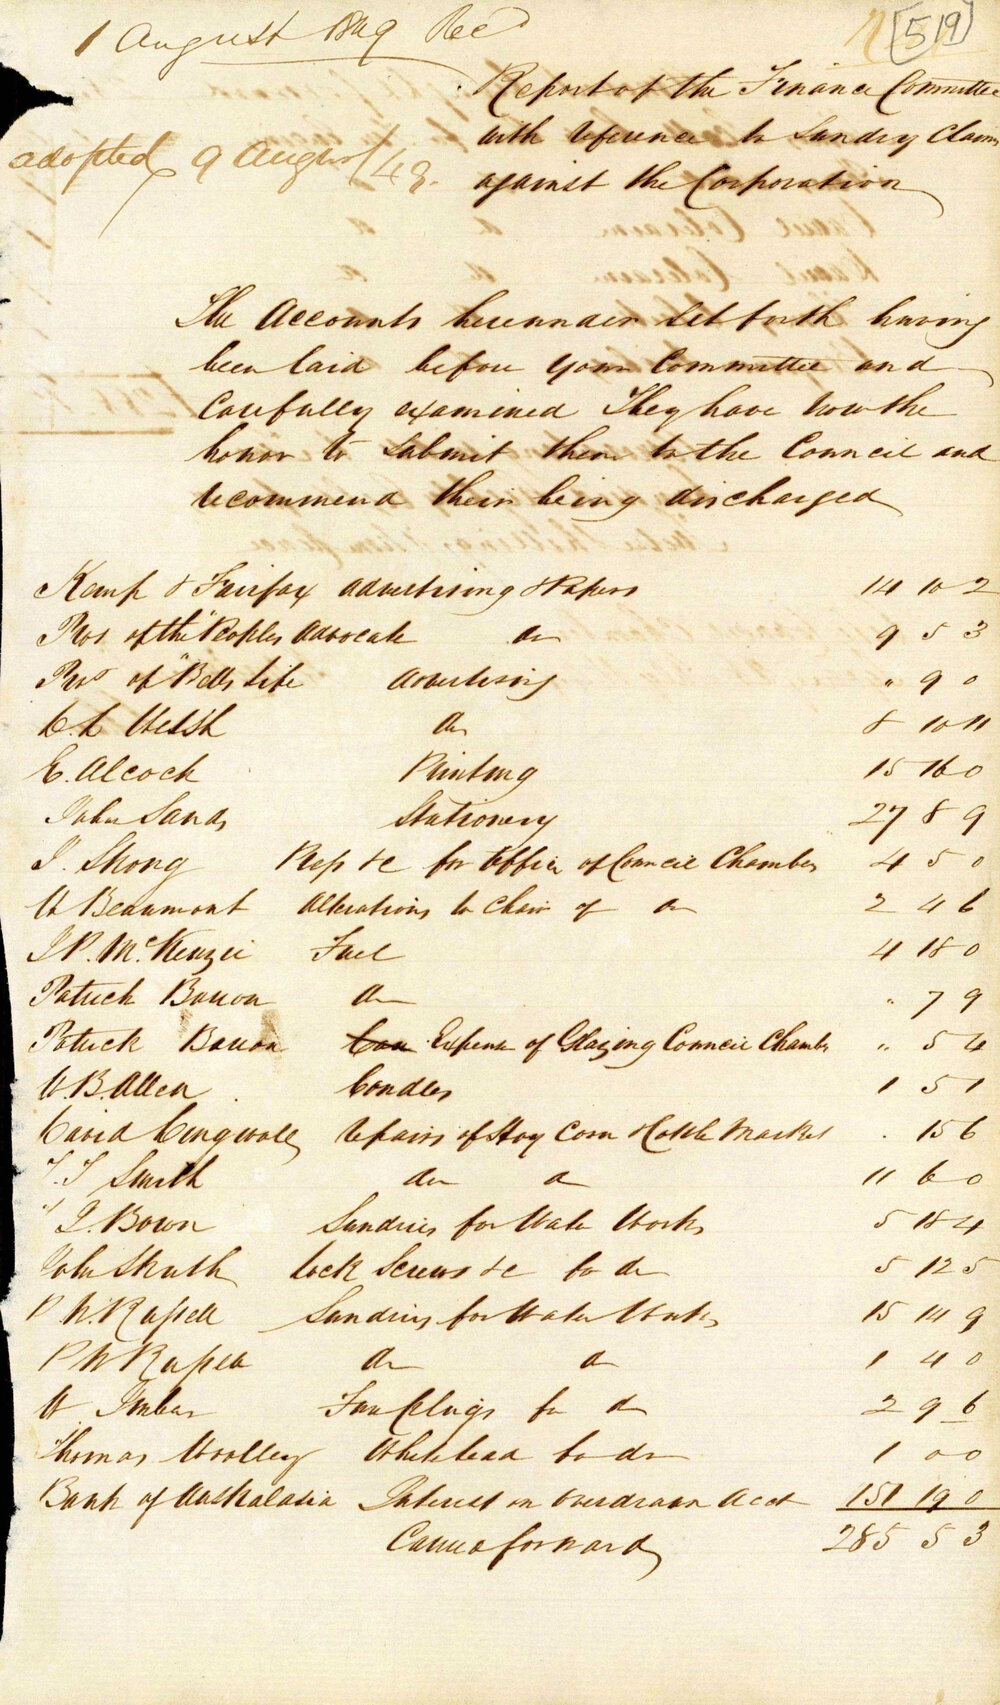 [519]
1 August 1849 Rec'd
Report of the Finance Committee
with reference to Sundry Claims
adopted 9 August/49.
against the Corporation
The Accounts hereunder set forth having
been laid before your Committee and
Carefully examined They have now the
honor to submit them to the Council and
recommend their being discharged
Kemp & Fairfax Advertising & Papers 14 10 2
Pros of the "Peoples Advocate do 9 5 3
Pro of "Bells Life Advertising " 9 0
do 8 10 11
E. Alcock Printing 15 16 0
John Sands Stationery 27 8 9
J. Strong &c for Office of Council Chamber 4 5 0
W Beaumont Alterations to Chair of do 2 4 6
J. P. McKenzie Fuel 4 18 0
Patrick Barron do " 7 9
Patrick Barron Expense of Glazing Council Chambr " 5 4
W. B. Allen Candles 1 5 1
David Dingwall repairs of Hay Corn & Cattle Market . 15 6
T. Smith do do 11 6 0
J. Bown Sundries for Water Works 5 18 4
John Struth Lock Screws &c for do 5 12 5
P. N. Russell Sundries for Water Works 15 14 9
P N Russell do do 1 4 0
W. Fire Plugs for do 2 9 6
Thomas Woolley Whitelead for do 1 0 0
Bank of Australasia Interest on overdrawn Acct 151 19 0
Carried forward 285 5 3